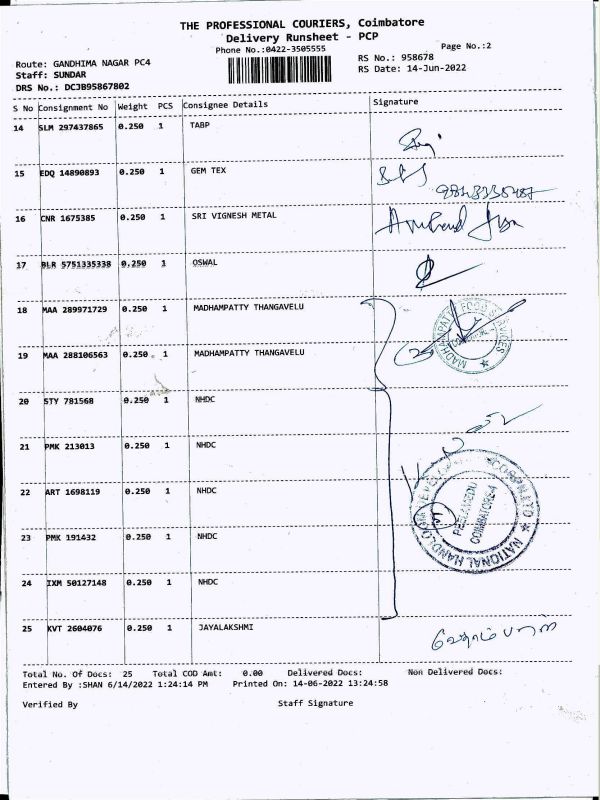 THE PROFESSIONAL COURIERS, Coimbatore
Delivery Runsheet - PCP
Phone No.:0422-3505555
Page No.:2
Route: GANDHIMA NAGAR PC4
Staff: SUNDAR
DRS No.: DCJB95867802
RS No.: 958678
RS Date: 14-Jun-2022
S No Consignment No Weight PCS Consignee Details Signature
14 SLM 297437865 0.250 1 TABP
15 EDQ 14890893 0.250 1 GEM TEX
16 CNR 1675385 0.250 1 SRI VIGNESH METAL
17 BLR 5751335338 0.250 1 OSWAL
18 MAA 289971729 0.250 1 MADHAMPATTY THANGAVELU
19 MAA 288106563 0.250 1 MADHAMPATTY THANGAVELU
(2)
MADHAMPATTY FOOD SERVICES
20 STY 781568 0.250 1 NHDC
21 PMK 213013 0.250 1 NHDC
22 ART 1698119 0.250 1 NHDC
23 PMK 191432 0.250 1 NHDC
24 IXM 50127148 0.250 1 NHDC
NATIONAL HANDLOOM
PEELAMEDU
COIMBATORE-4
25 KVT 2604076 0.250 1 JAYALAKSHMI
Total No. Of Docs: 25 Total COD Amt: 0.00 Delivered Docs: Non Delivered Docs:
Entered By :SHAN 6/14/2022 1:24:14 PM Printed On: 14-06-2022 13:24:58
Verified By Staff Signature